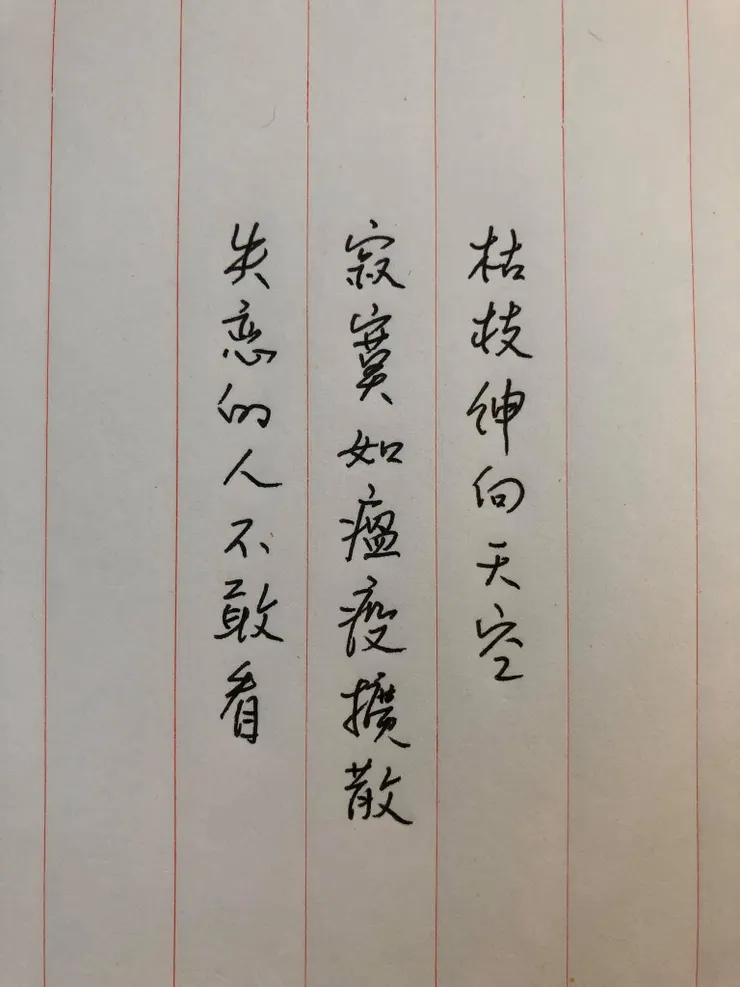 枯枝伸向天空
寂寞如瘟疫擴散
失恋的人不敢看